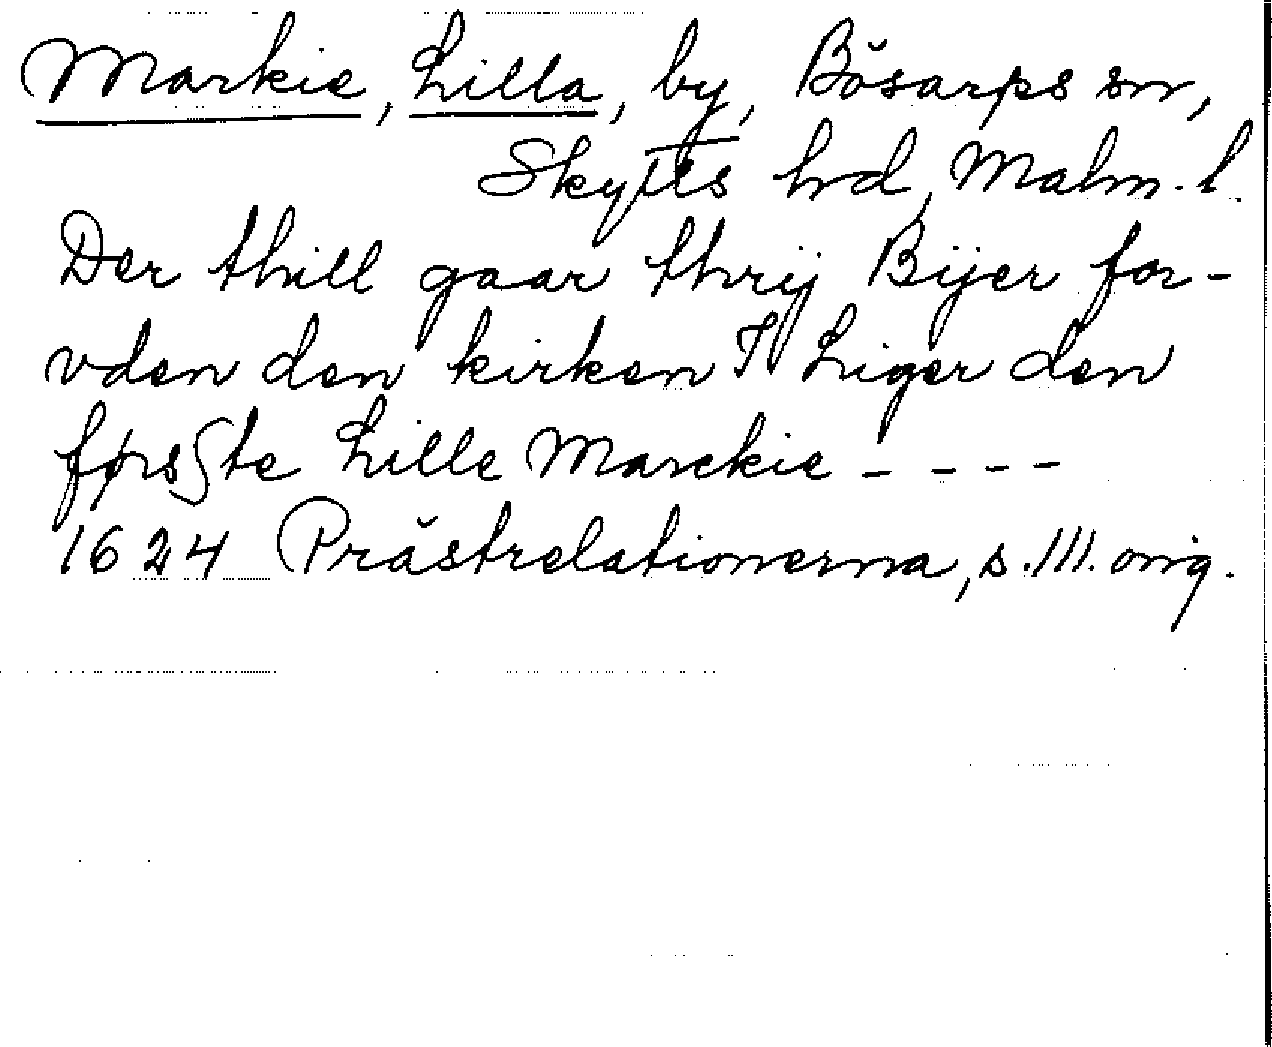 Markie, Lilla, by, Bösarps sn,
Skytts hrd, Malm. l.
Der thill gaar thrij Bijer for-
vden den kirken I Liger den
førsste Lille Marckie - - - -
1624 Prästrelationerna, s. 111. orig.